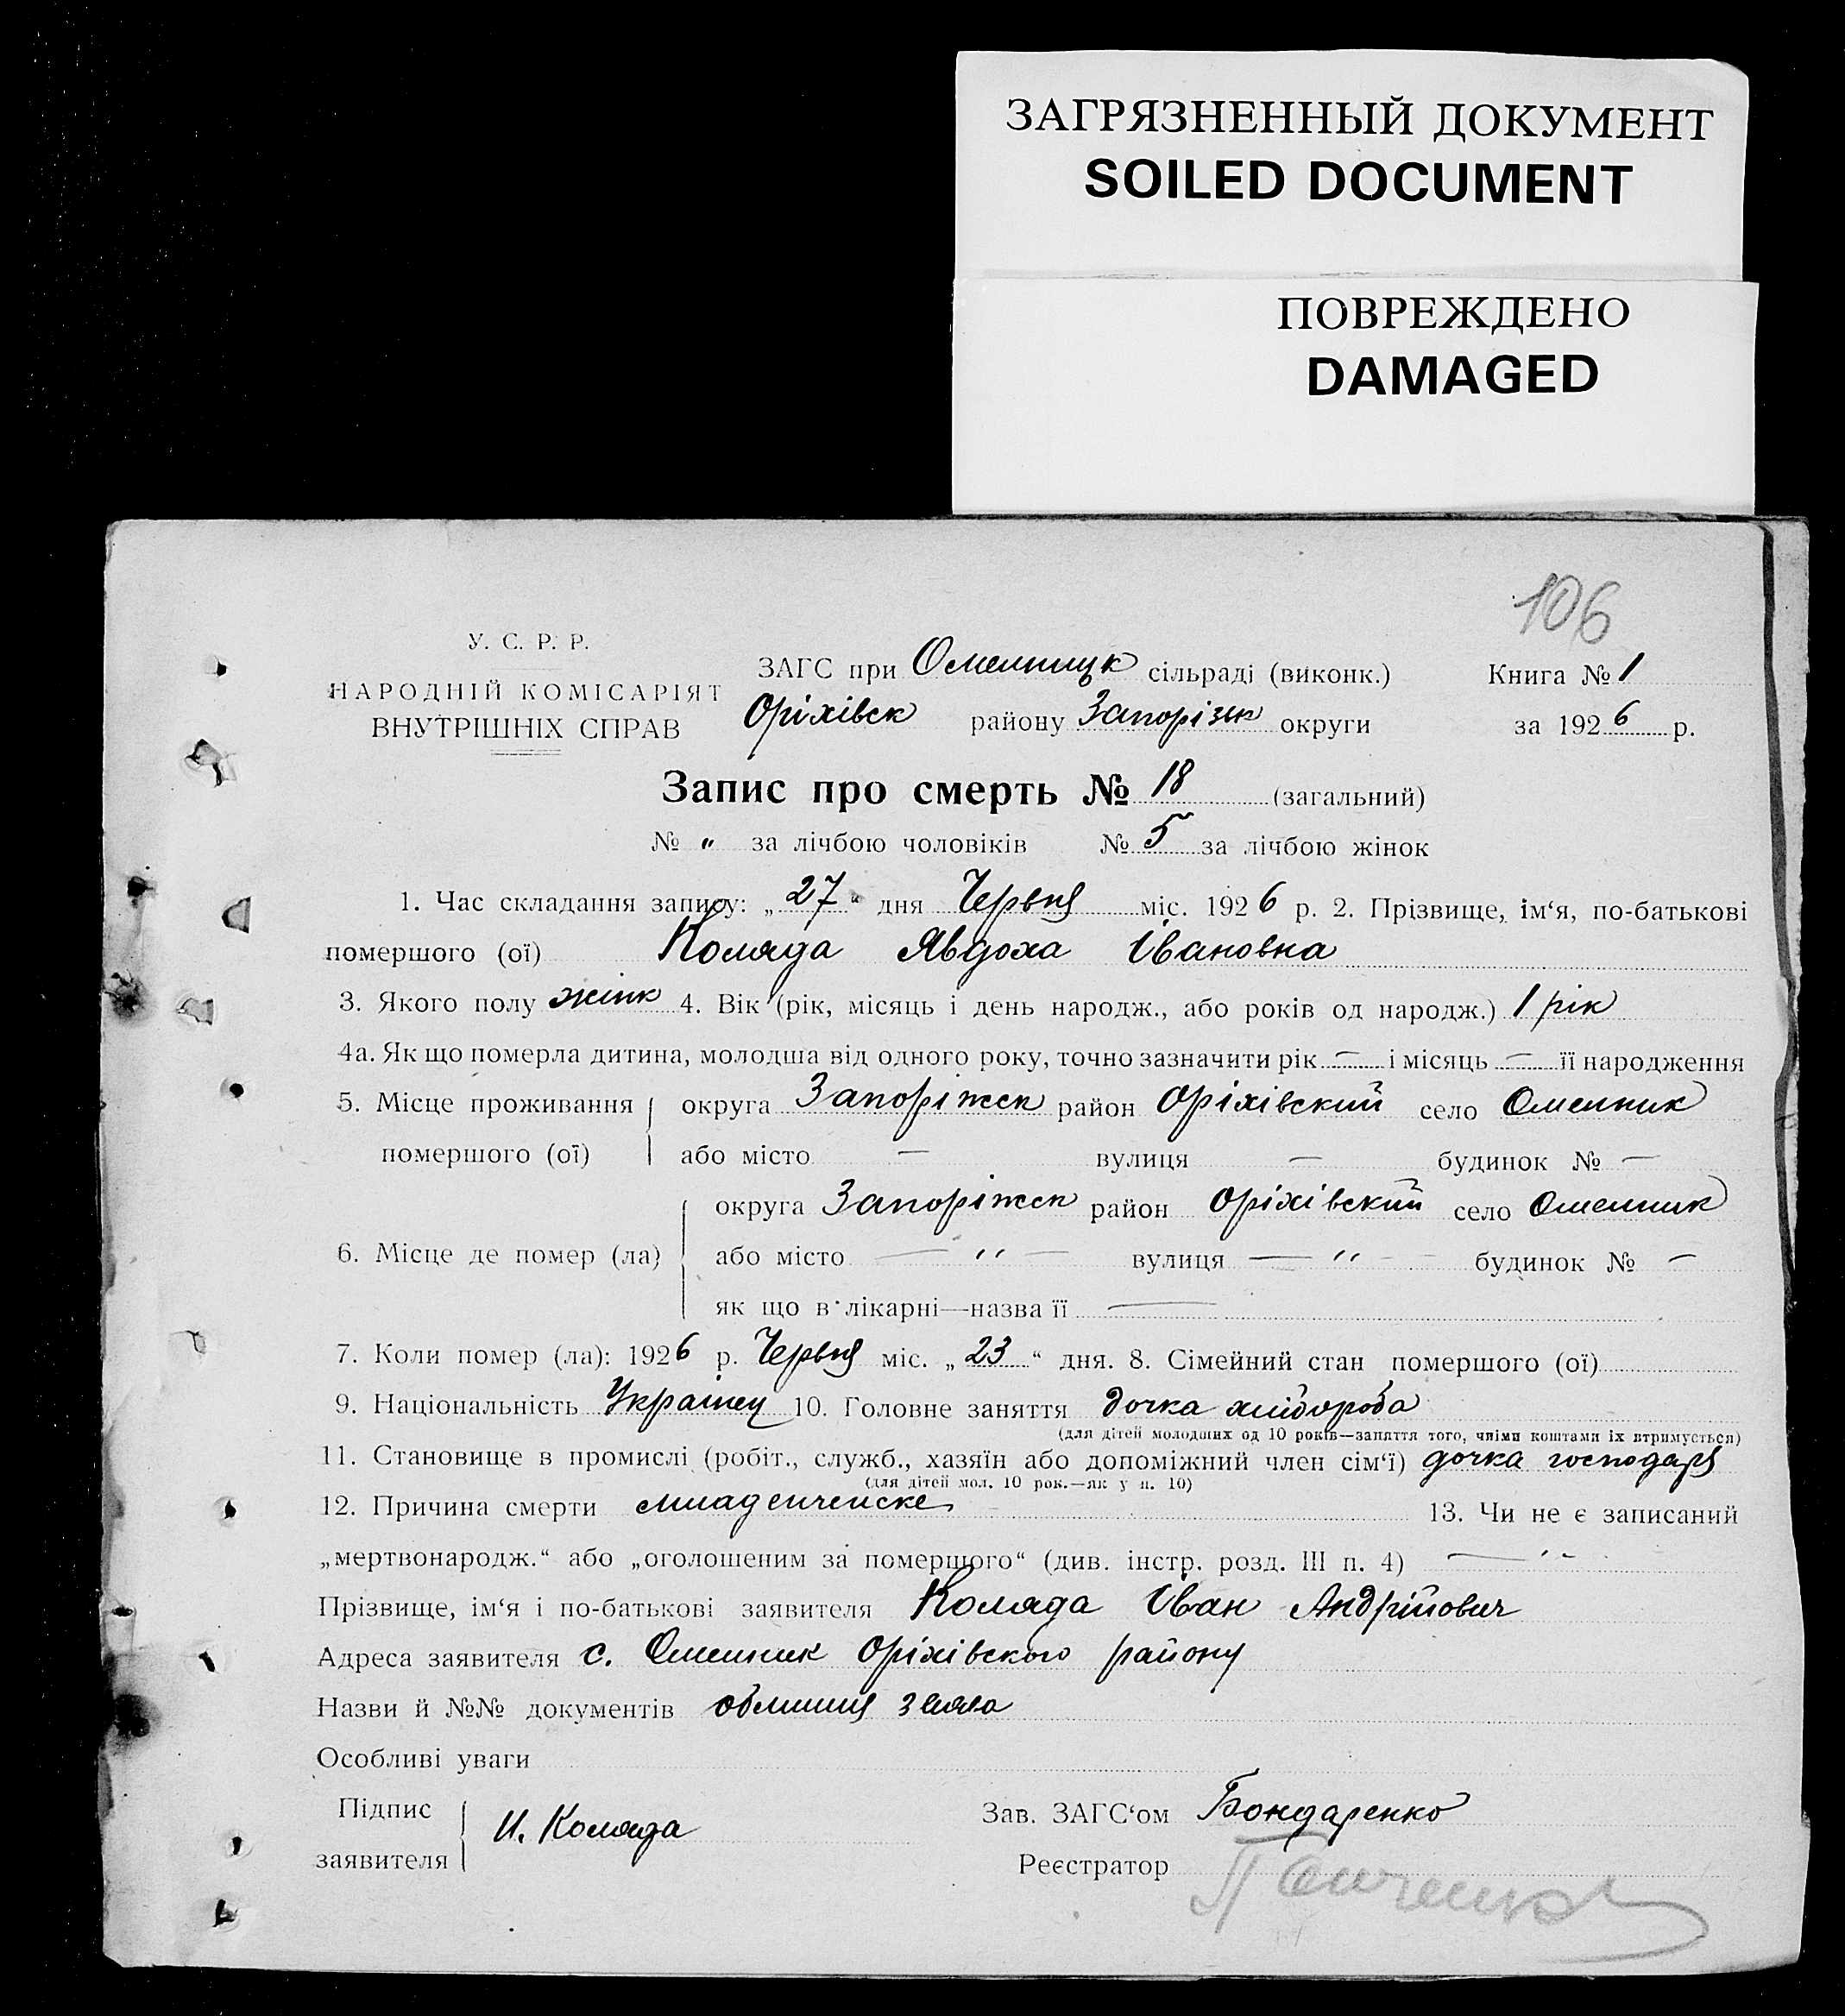 ЗАГРЯЗНЕННЫЙ ДОКУМЕНТ
SOILED DOCUMENT
ПОВРЕЖДЕНО
DAMAGED
106
У. С. Р. Р.
НАРОДНІЙ КОМІСАРІЯТ
ВНУТРІШНІХ СПРАВ
ЗАГС при Омельницк сільраді (виконк.) Книга № 1
Оріхівск району Запорізьк округи за 1926 р.
Запис про смерть № 18 (загальний)
№ " за лічбою чоловіків № 5 за лічбою жінок
1. Час складання запису: „27“ дня Червня міс. 1926 р. 2. Прізвище, ім‘я, по-батькові
помершого (ої) Коляда Явдоха Івановна
3. Якого полу жінк 4. Вік (рік, місяць і день народж., або років од народж.) 1 рік
4а. Як що померла дитина, молодша від одного року, точно зазначити рік — і місяць — її народження
5. Місце проживання помершого (ої)
округа Запоріжск район Оріхівский село Омельник
або місто — вулиця — будинок № —
6. Місце де помер (ла)
округа Запоріжск район Оріхівский село Омельник
або місто — " — вулиця — " — будинок № —
як що в лікарні—назва її —
7. Коли помер (ла): 1926 р. Червня міс. „23“ дня. 8. Сімейний стан помершого (ої)
9. Національність Україньц 10. Головне заняття дочка хлібороба
(для дітей молодших од 10 років—заняття того, чиїми коштами їх втримується)
11. Становище в промислі (робіт., служб., хазяїн або допоміжний член сім‘ї) дочка господаря
(для дітей мол. 10 рок.—як у п. 10)
12. Причина смерти младенченске 13. Чи не є записаний
„мертвонародж.“ або „оголошеним за помершого“ (див. інстр. розд. III п. 4) — "
Прізвище, ім‘я і по-батькові заявителя Коляда Іван Андрійович
Адреса заявителя с. Омельник Оріхівского району
Назви й №№ документів
Особливі уваги
Підпис заявителя И. Коляда
Зав. ЗАГС‘ом Бондаренко
Реєстратор